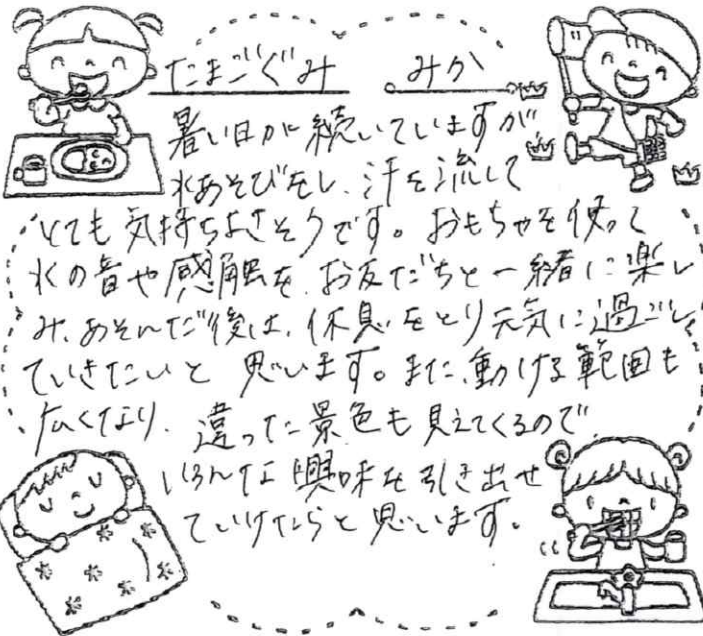 たまごぐみ みか
暑い日が続いていますが
水あそびをし、汗を流して
とても気持ちよさそうです。おもちゃを使って
水の音や感触を、お友だちと一緒に楽し
み、あそんだ後は、休息をとり元気に過ごし
ていきたいと思います。また、動ける範囲も
広くなり、違った景色も見えてくるので
いろんな興味を引き出せ
ていけたらと思います。